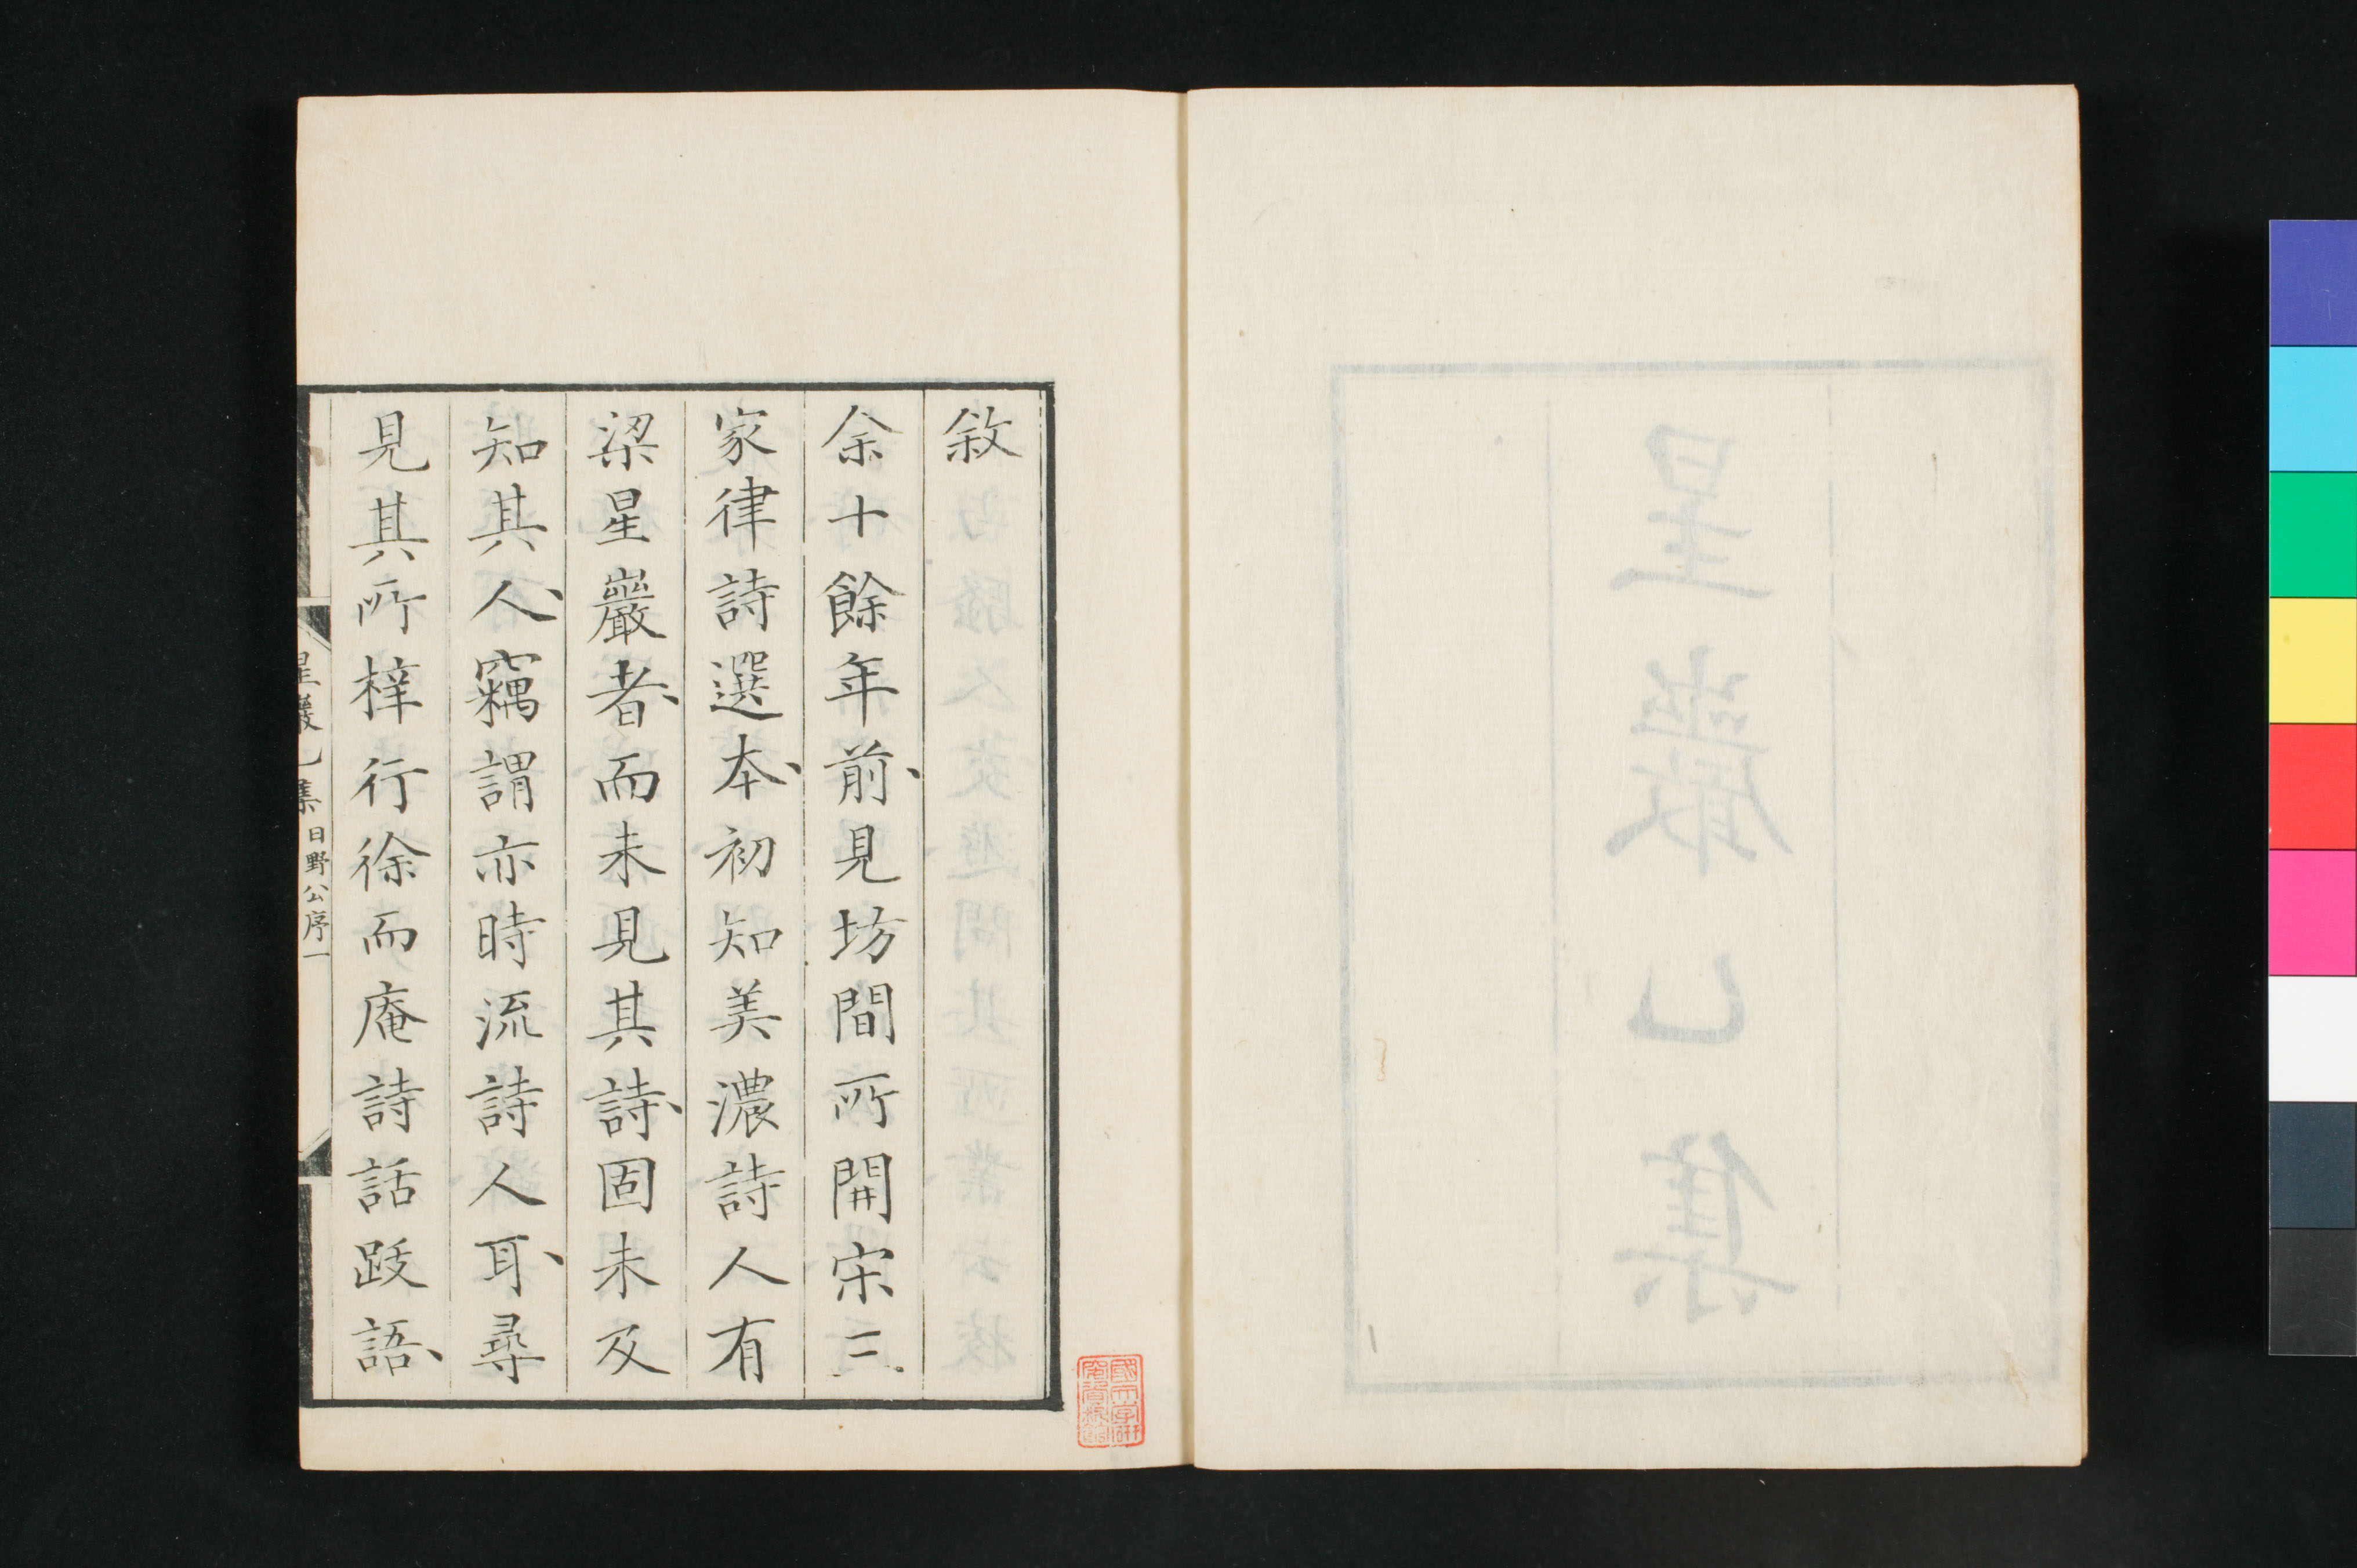 敘
余十餘年前、見坊間所開宋三
家律詩選本、初知美濃詩人有
梁星巖者、而未見其詩、固未及
知其人、竊謂亦時流詩人耳、尋
見其所梓行徐而庵詩話跋語、
星巖乙集 日野公序 一
星巖乙集